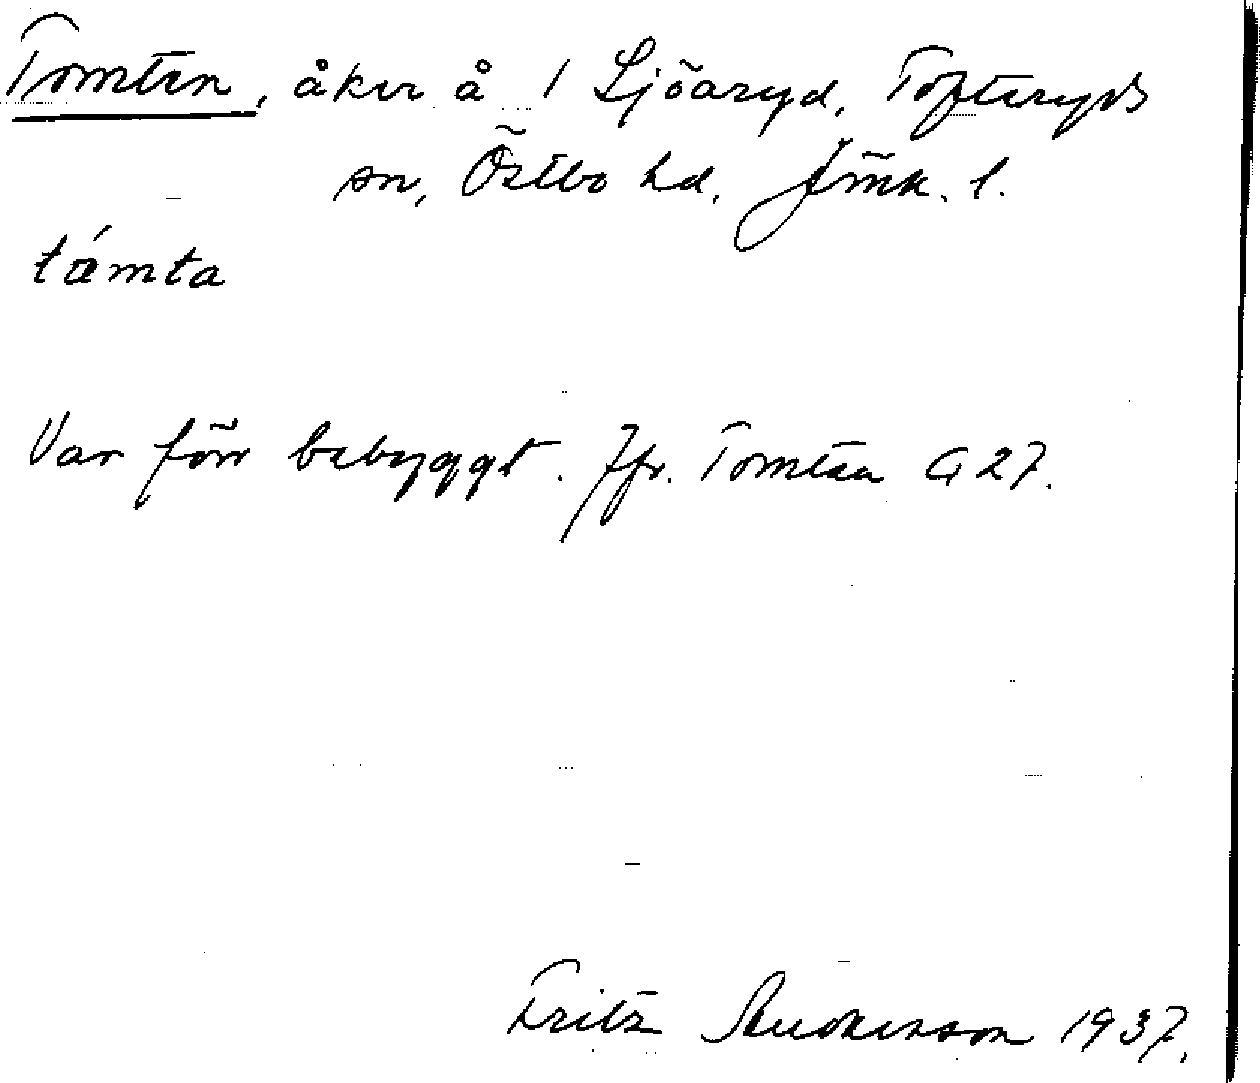 Tomten, åker å 1 Ljöaryd, Tofteryds
sn, Östbo hd, Jönk. l.
támta
Var förr bebyggt. Jfr. Tomten G 27.
Fritz 1937.